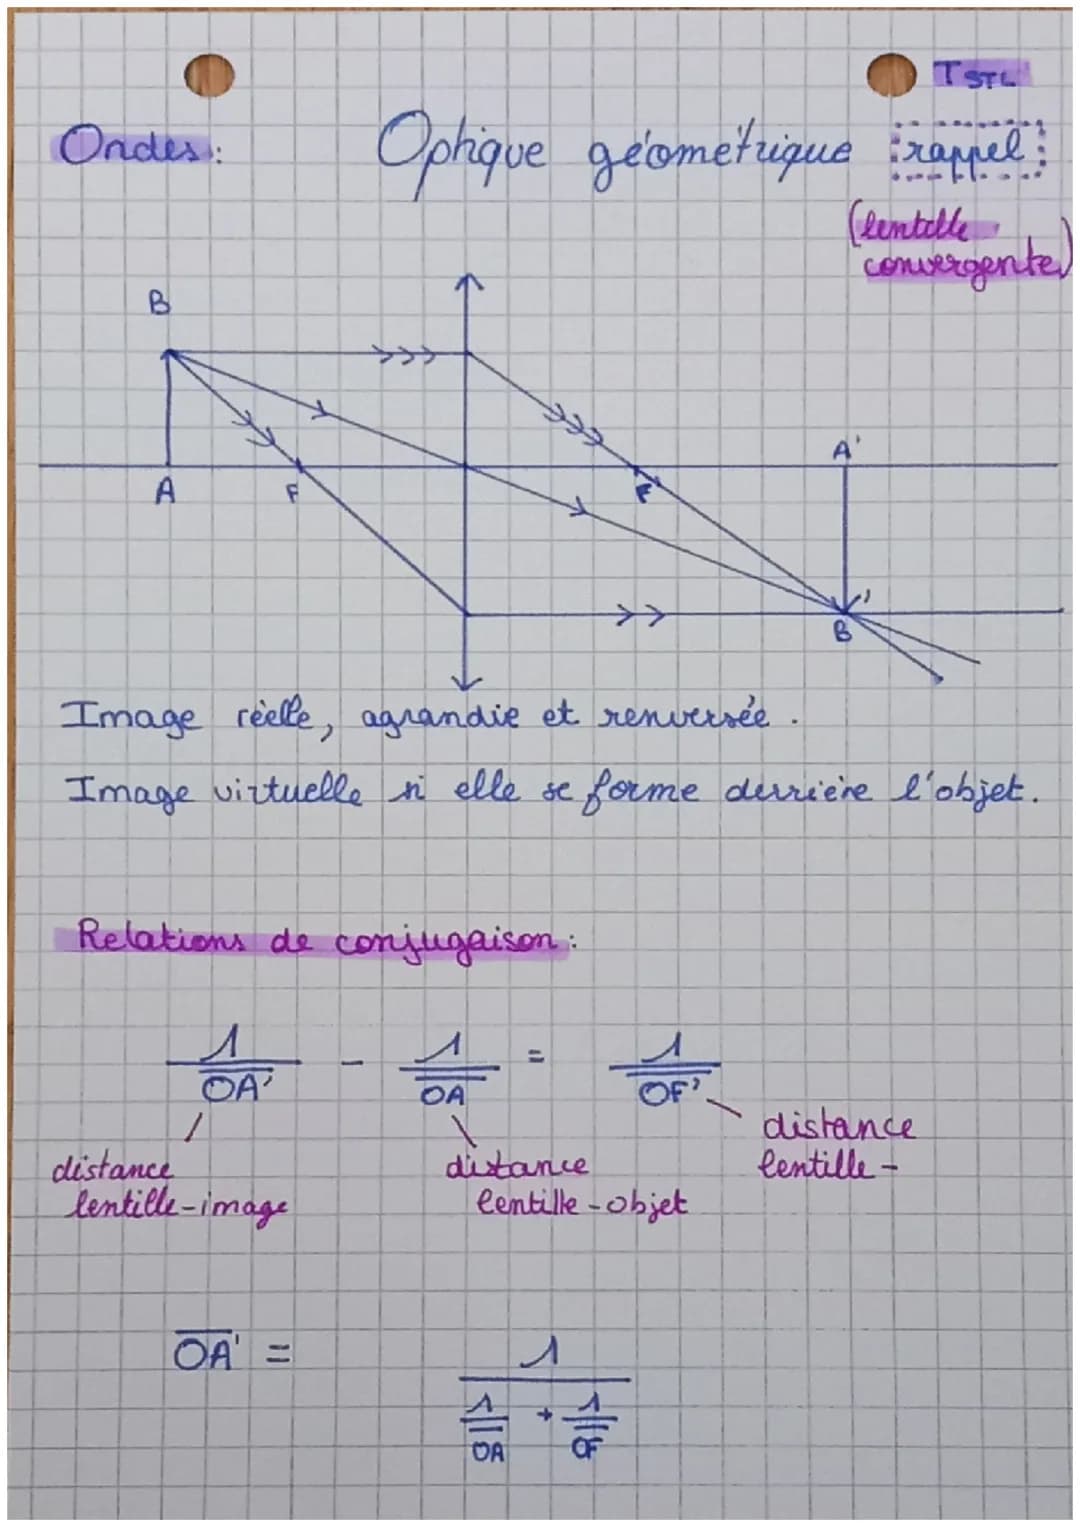 TSTL
Ondes: Optique géométrique rappel:
(lentille
convergente)
B
A'
A F F
B'
Image réelle, agrandie et renversée.
Image virtuelle si elle se forme derrière l'objet.
Relations de conjugaison:
1/OA' - 1/OA = 1/OF'
distance
lentille-image
distance
lentille-objet
distance
lentille-
OA' = 1/(1/OA + 1/OF)